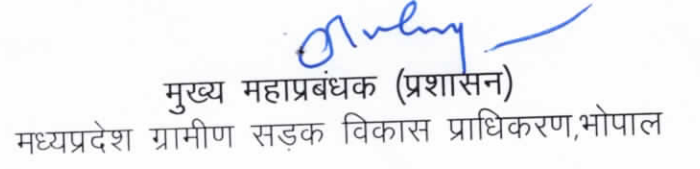 मुख्य महाप्रबंधक (प्रशासन)
मध्यप्रदेश ग्रामीण सड़क विकास प्राधिकरण,भोपाल